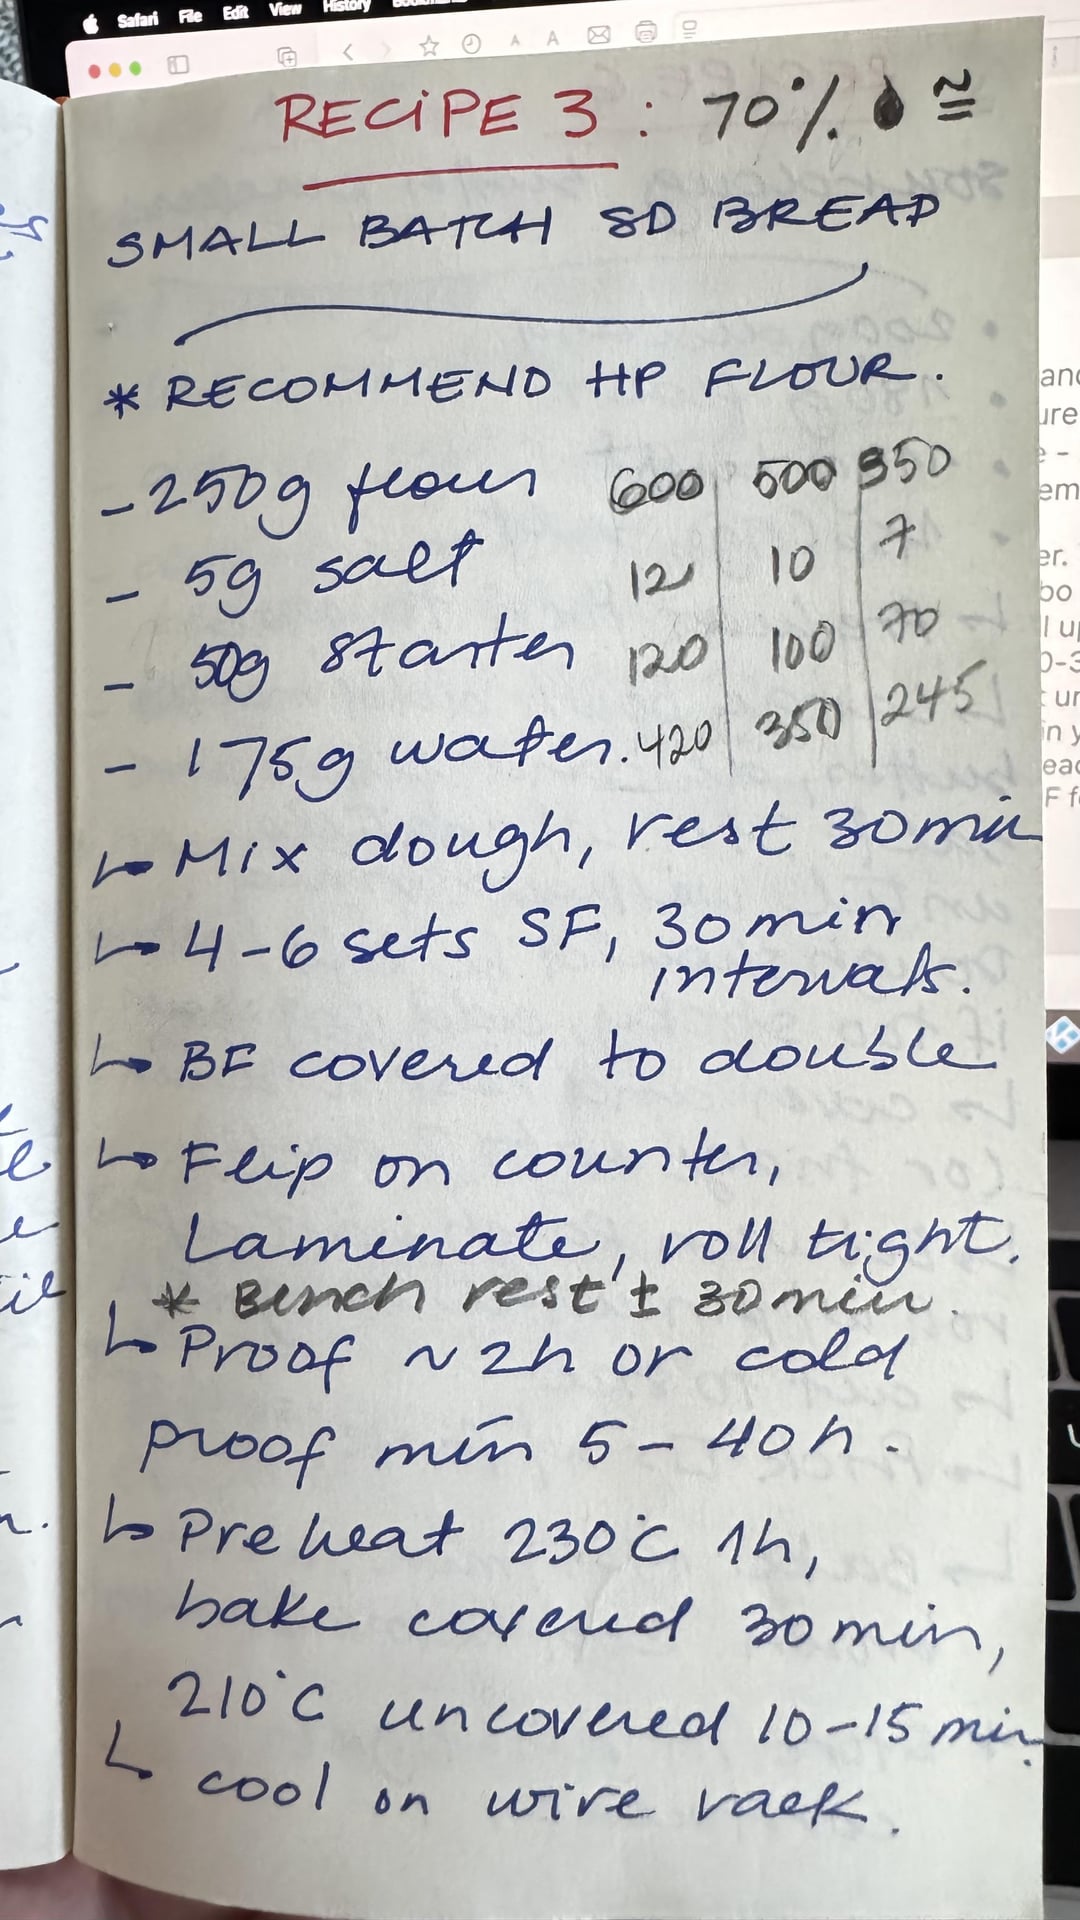 Safari File Edit View History
RECIPE 3 : 70% ≅
SMALL BATCH SD BREAD
* RECOMMEND HP FLOUR.
- 250g flour 600 500 350
- 5g salt 12 10 7
- 50g starter 120 100 70
- 175g water. 420 350 245
↳ Mix dough, rest 30min
↳ 4-6 sets SF, 30min
intervals.
↳ BF covered to double
↳ Flip on counter,
Laminate, roll tight.
* Bench rest ± 30min.
↳ Proof ~2h or cold
proof min 5-40h.
↳ Preheat 230°C 1h,
bake covered 30min,
210°C uncovered 10-15min
↳ cool on wire rack.